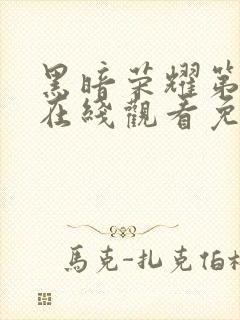 黑暗荣耀第
在綫觀看免
馬克-扎克伯格